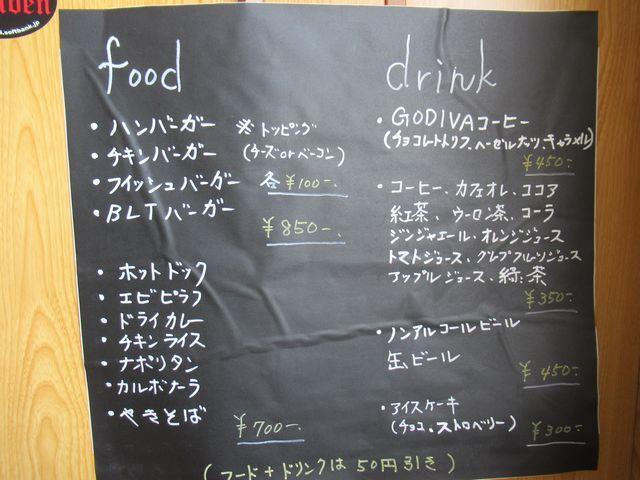 .softbank.jp
food
・ハンバーガー ※トッピング
・チキンバーガー (チーズorベーコン)
・フィッシュバーガー 各¥100-.
・BLTバーガー
¥850-.
・ホットドック
・エビピラフ
・ドライカレー
・チキンライス
・ナポリタン
・カルボナーラ
・やきそば
¥700-.
drink
・GODIVAコーヒー
(チョコレートトリフ、ヘーゼルナッツ、キャラメル)
¥450-.
・コーヒー、カフェオレ、ココア
紅茶、ウーロン茶、コーラ
ジンジャエール、オレンジジュース
トマトジュース、グレープフルーツジュース
アップルジュース、緑茶
¥350-.
・ノンアルコールビール
缶ビール
¥450-.
・アイスケーキ
(チョコ、ストロベリー)
¥300-.
(フード+ドリンクは50円引き)